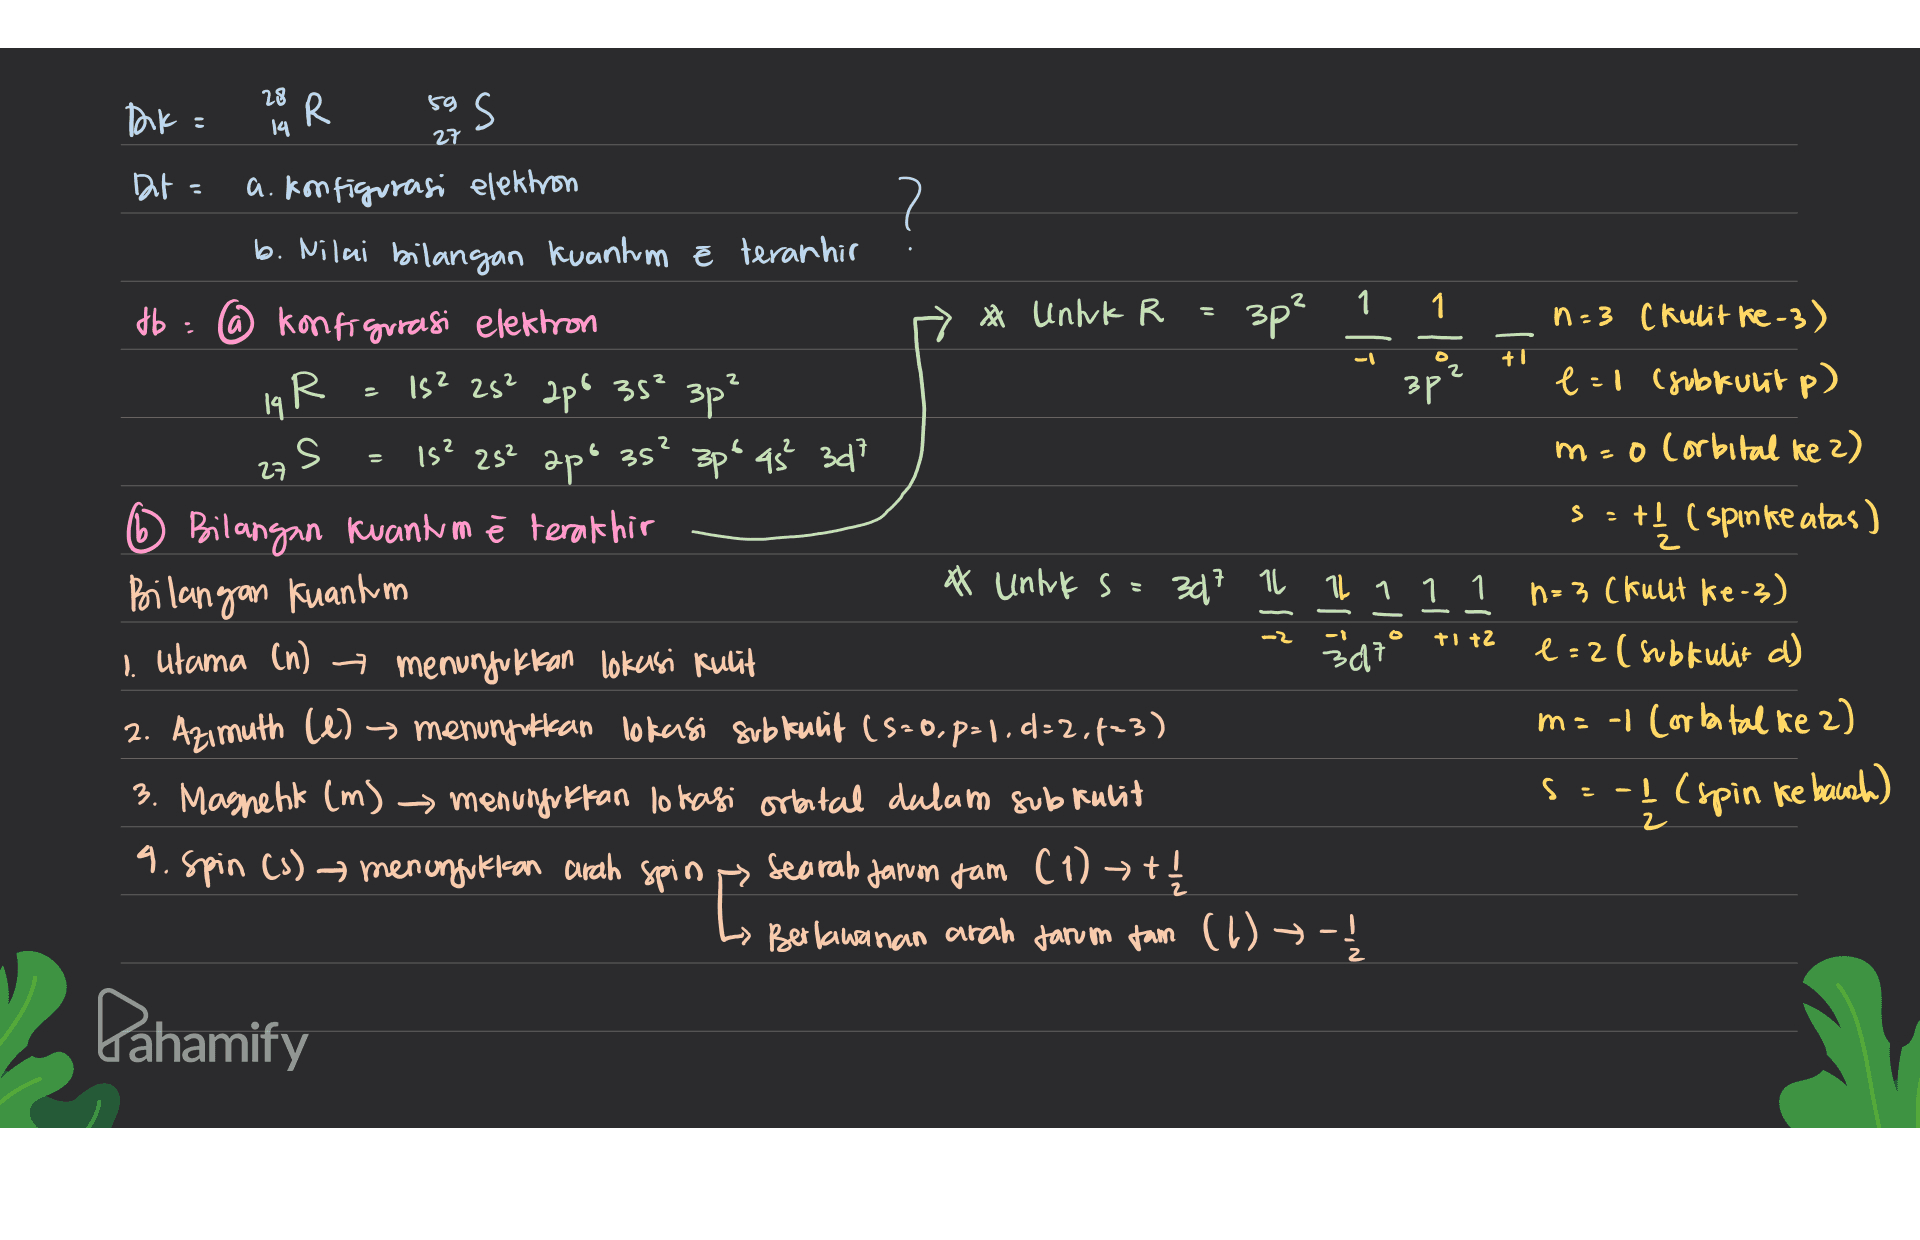 Dik = ²⁸₁₄ R ⁵⁹₂₇ S
Dit = a. konfigurasi elektron
b. Nilai bilangan kuantum ē terakhir ?
db : ⓐ konfigurasi elektron
₁₄R = 1s² 2s² 2p⁶ 3s² 3p²
₂₇S = 1s² 2s² 2p⁶ 3s² 3p⁶ 4s² 3d⁷
ⓑ Bilangan kuantum ē terakhir
Bilangan kuantum
1. Utama (n) → menunjukkan lokasi kulit
2. Azimuth (l) → menunjukkan lokasi subkulit (s=0, p=1, d=2, f=3)
3. Magnetik (m) → menunjukkan lokasi orbital dalam subkulit
4. Spin (s) → menunjukkan arah spin → Searah jarum jam (1) → +1/2
↳ Berlawanan arah jarum jam (⇂) → -1/2
* Untuk R = 3p² 1 1 _
-1 0 +1
3p²
n=3 (kulit ke-3)
l=1 (subkulit p)
m=0 (orbital ke 2)
s = +1/2 (spin ke atas)
* Untuk S = 3d⁷ 1⇂ 1⇂ 1 1 1
-2 -1 0 +1 +2
3d⁷
n=3 (kulit ke-3)
l=2 (subkulit d)
m= -1 (orbital ke 2)
s = -1/2 (spin ke bawah)
Pahamify